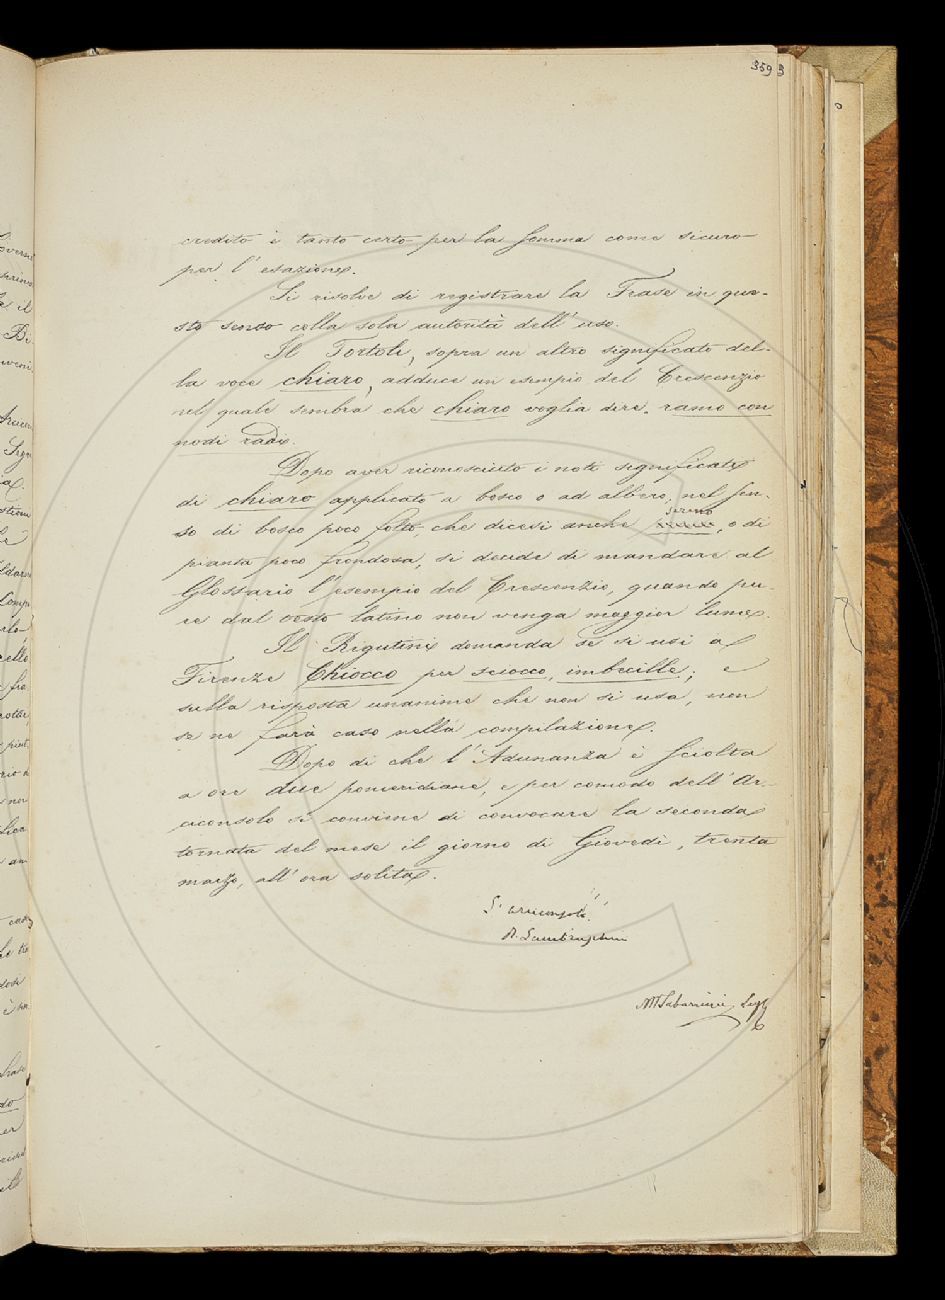 359
credito è tanto certo per la somma come sicuro
per l' esazione.
Si risolve di registrare la Frase in que-
sto senso colla sola autorità dell' uso.
Il Tortoli, sopra un altro significato del-
la voce chiaro, adduce un esempio del Crescenzio
nel quale sembra che chiaro voglia dire, ramo con
nodi radi.
Dopo aver riconosciuto i noti significati
di chiaro applicato a bosco o ad albero, nel sen-
so di bosco poco folto, che dicesi anche sereno, o di
pianta poco frondosa, si decide di mandare al
Glossario l' esempio del Crescenzio, quando pu-
re dal testo latino non venga maggior lume.
Il Rigutini domanda se si usi a
Firenze Chiocco per sciocco, imbecille; e
sulla risposta unanime che non si usa, non
se ne farà caso nella compilazione.
Dopo di che l' Adunanza è sciolta
a ore due pomeridiane, e per comodo dell' Ar-
ciconsolo si conviene di convocare la seconda
tornata del mese il giorno di Giovedì, trenta
marzo, all' ora solita.
L' arciconsolo
R. Lambruschini
M Tabarrini Segr